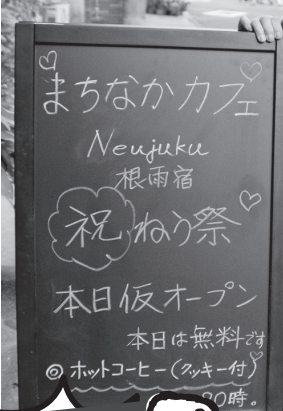 まちなかカフェ
Neujuku
根雨宿
祝 ねう祭
本日仮オープン
本日は無料です
◎ホットコーヒー(クッキー付)
20時。